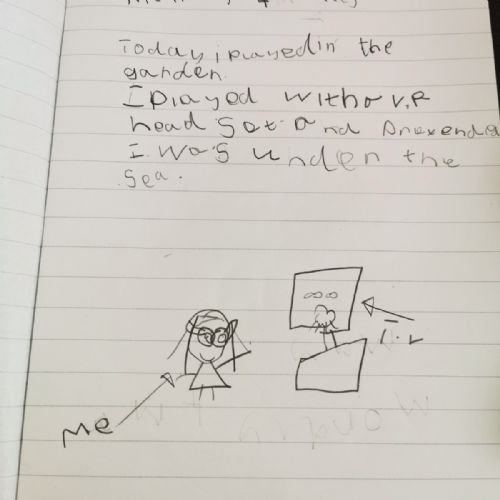 Today i played in the
garden.
I played with a V.R
head set and pretended
I was under the
sea.
Me